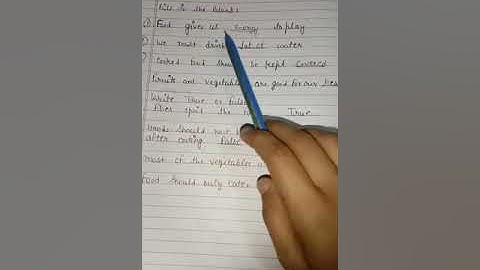 in the blanks
Food gives us energy to play
we must drink lot of water
cooked food should be kept covered
fruits and vegetables are good for our
Write True or False
flies spoil the True
Hands should not
after eating. False
most of the vegetables
Food should